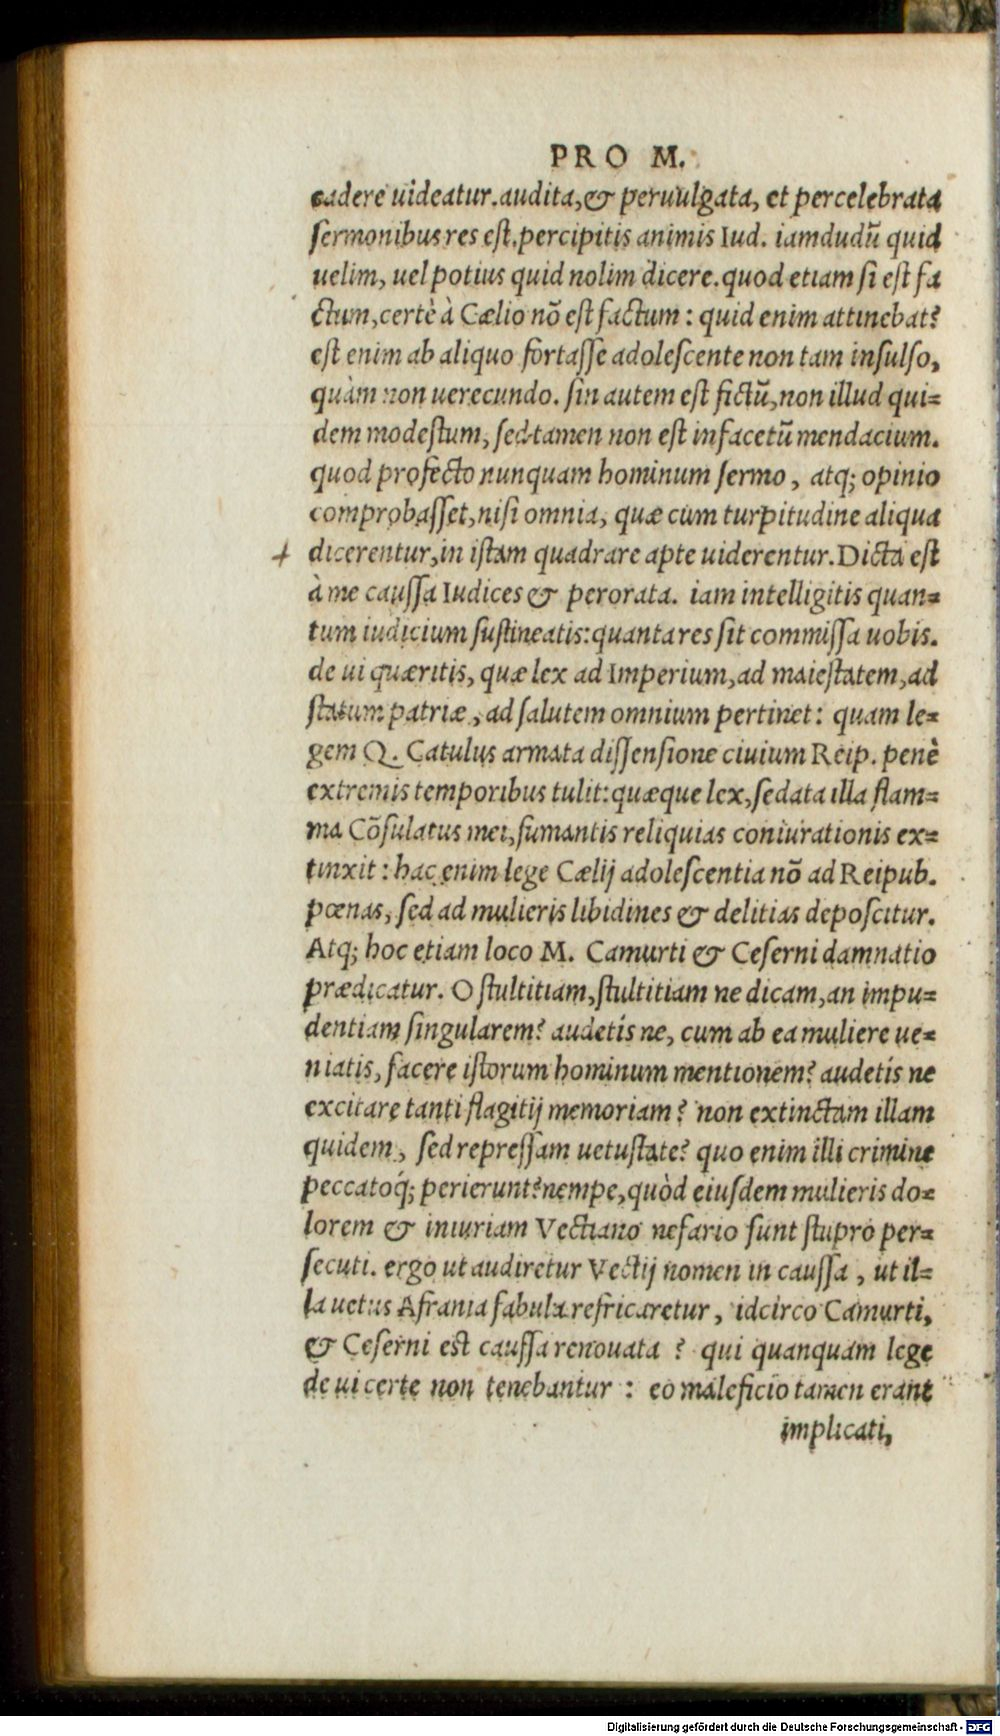 PRO M.
cadere uideatur. audita, & peruulgata, et percelebrata
sermonibus res est. percipitis animis Iud. iamdudũ quid
uelim, uel potius quid nolim dicere. quod etiam si est fa
ctum, certè à Cælio nõ est factum: quid enim attinebat?
est enim ab aliquo fortasse adolescente non tam insulso,
quàm non uerecundo. sin autem est fictũ, non illud qui-
dem modestum, sed tamen non est infacetũ mendacium.
quod profecto nunquam hominum sermo, atq; opinio
comprobasset, nisi omnia, quæ cum turpitudine aliqua
+ dicerentur, in istam quadrare apte uiderentur. Dicta est
à me caussa Iudices & perorata. iam intelligitis quan-
tum iudicium sustineatis: quanta res sit commissa uobis.
de ui quæritis, quæ lex ad Imperium, ad maiestatem, ad
statum patriæ, ad salutem omnium pertinet: quam le-
gem Q. Catulus armata dissensione ciuium Reip. penè
extremis temporibus tulit: quæque lex, sedata illa flam-
ma Cõsulatus mei, fumantis reliquias coniurationis ex-
tinxit: hac enim lege Cælij adolescentia nõ ad Reipub.
pœnas, sed ad mulieris libidines & delitias deposcitur.
Atq; hoc etiam loco M. Camurti & Ceserni damnatio
prædicatur. O stultitiam, stultitiam ne dicam, an impu-
dentiam singularem? audetís ne, cum ab ea muliere ue-
niatis, facere istorum hominum mentionem? audetís ne
excitare tanti flagitij memoriam? non extinctam illam
quidem, sed repressam uetustate? quo enim illi crimine
peccatoq́; perierunt? nempe, quòd eiusdem mulieris do-
lorem & iniuriam Vectiano nefario sunt stupro per-
secuti. ergo ut audiretur Vectij nomen in caussa, ut il-
la uetus Afrania fabula refricaretur, idcirco Camurti,
& Ceserni est caussa renouata? qui quanquam lege
de ui certe non tenebantur: eo maleficio tamen erant
implicati,
Digitalisierung gefördert durch die Deutsche Forschungsgemeinschaft - DFG